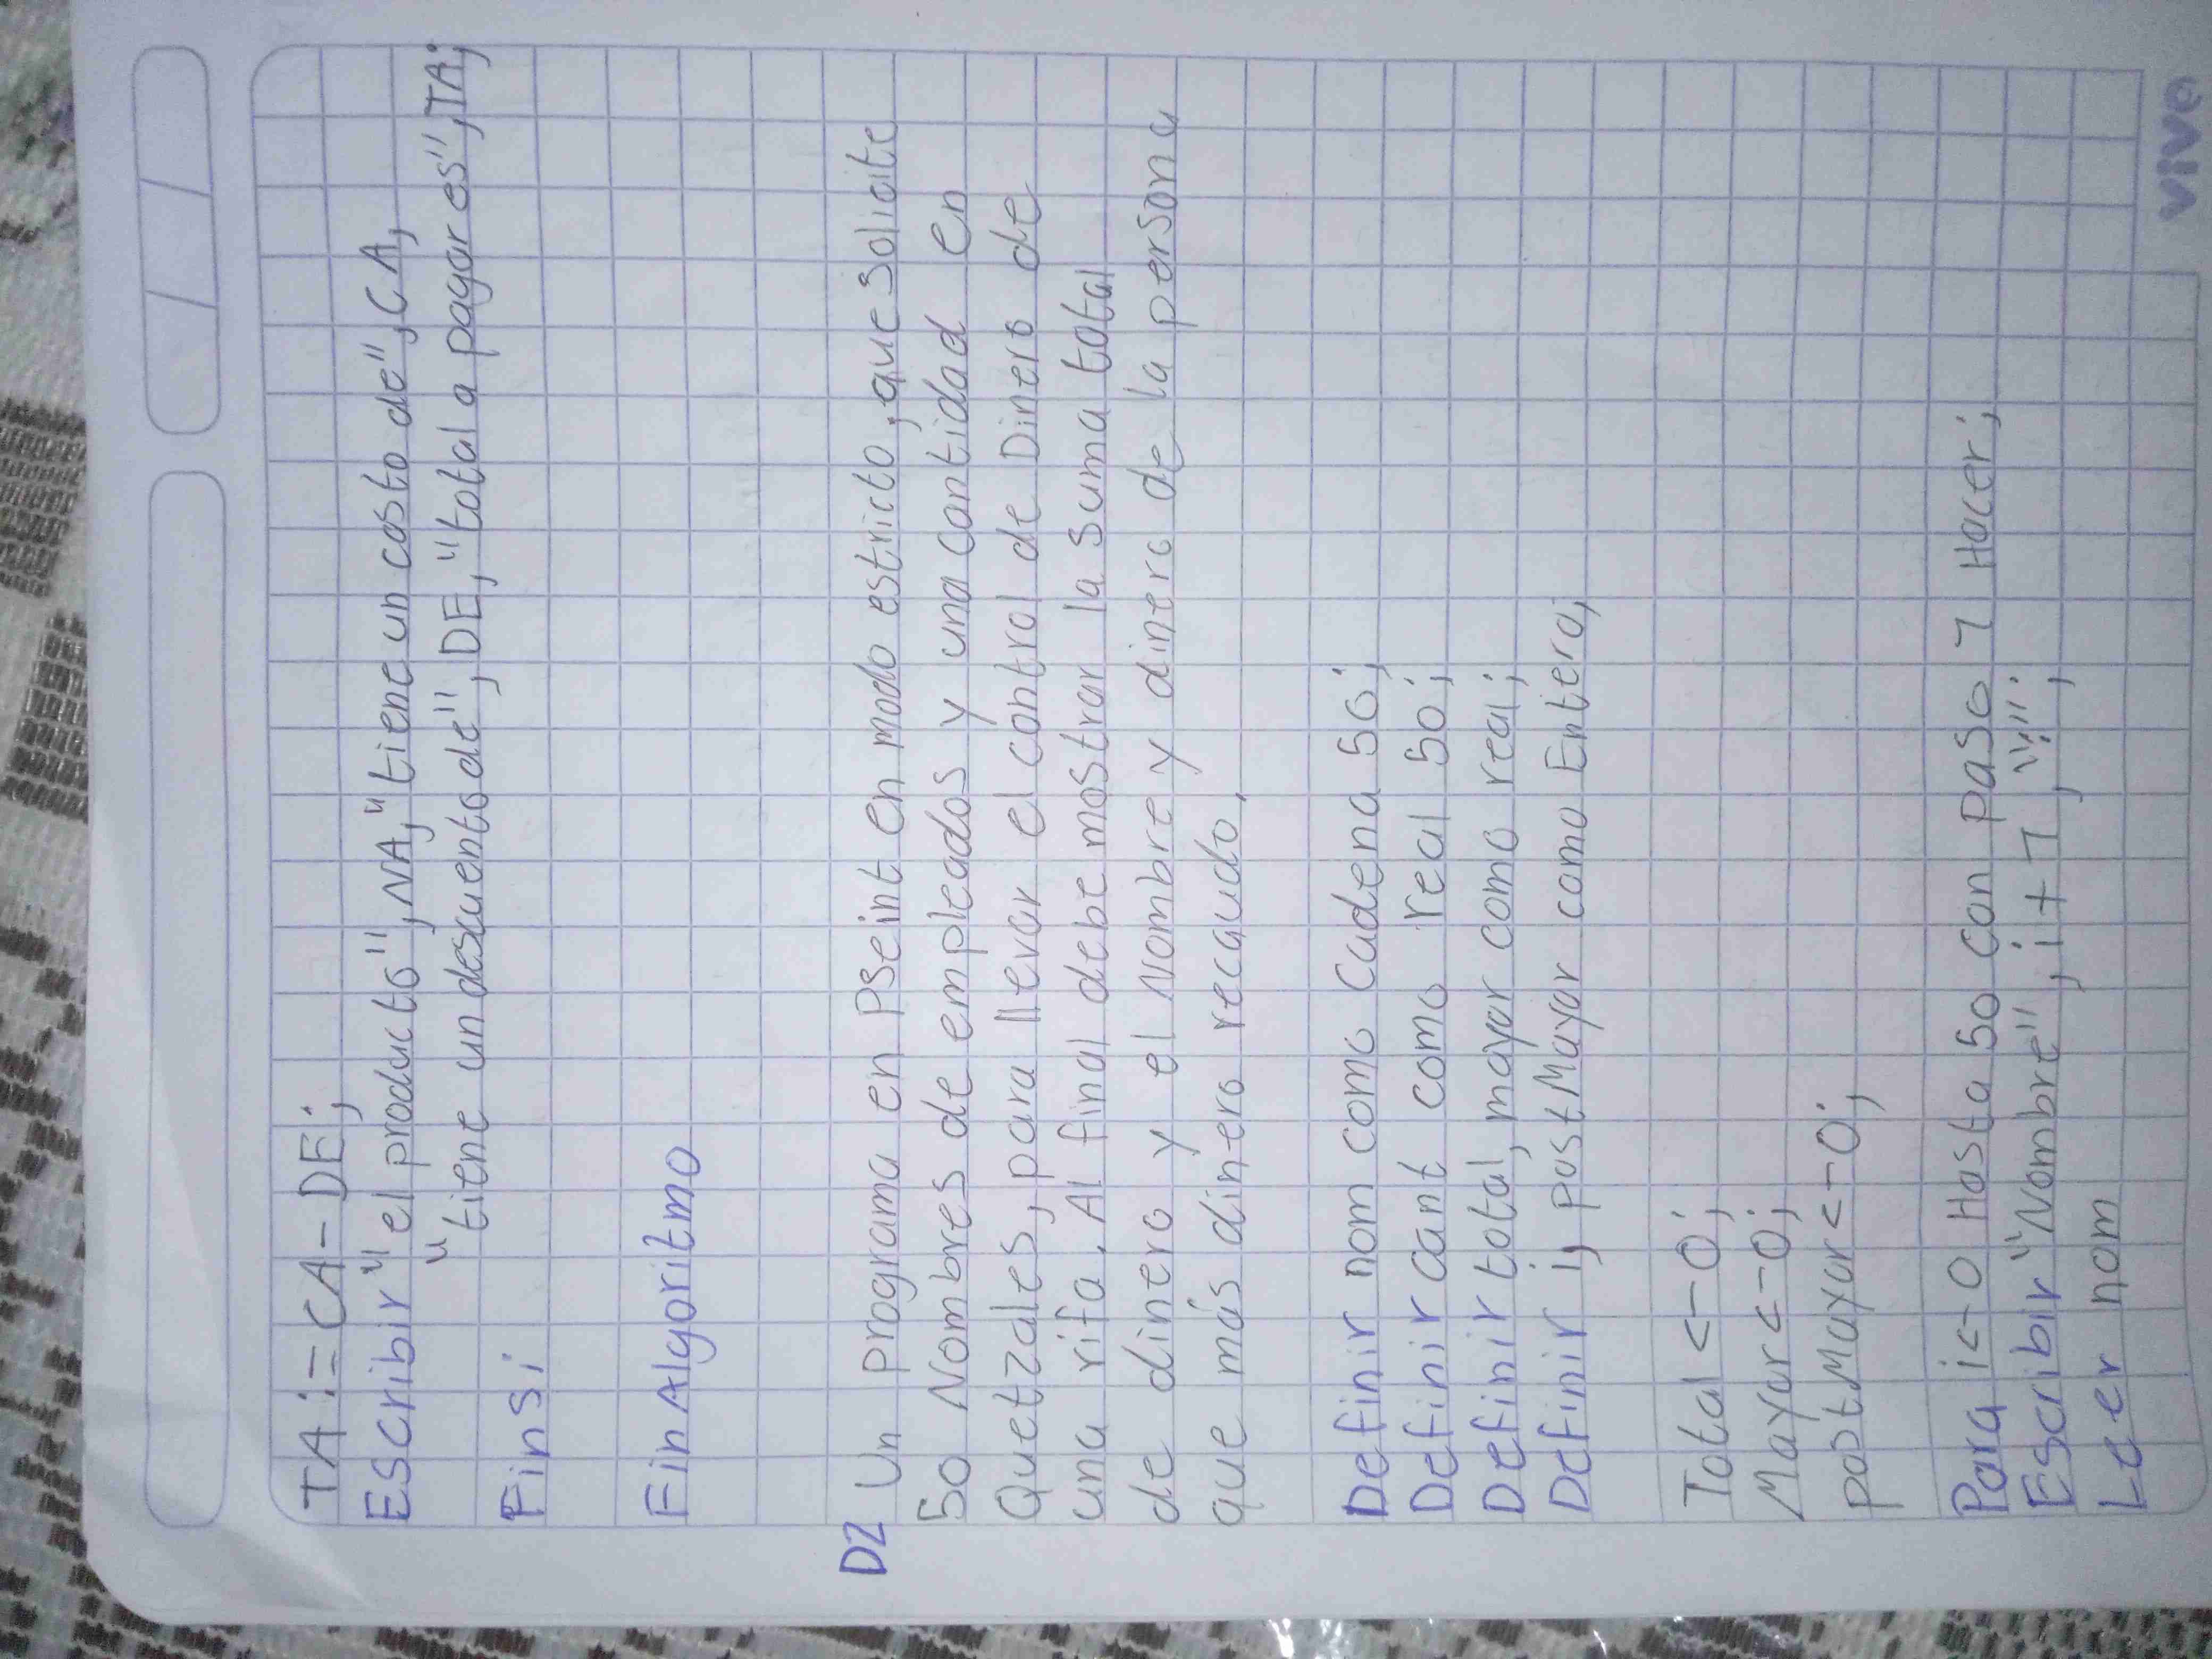 TA:=CA-DE;
Escribir "el producto",NA,"tiene un costo de",CA,
"tiene un descuento de",DE,"total a pagar es",TA;
Finsi
FinAlgoritmo
D2 Un programa en Pseint en modo estricto, que solicite
50 Nombres de empleados y una cantidad en
Quetzales, para llevar el control de Dinero de
una rifa. Al final debe mostrar la suma total
de dinero y el Nombre y dinero de la persona
que más dinero recaudo.
Definir nom como Cadena 50;
Definir cant como real 50;
Definir total, mayor como real;
Definir i, postMayor como Entero;
Total <-0;
Mayor <-0;
postMayor <-0;
Para i<-0 Hasta 50 con Paso 1 Hacer;
Escribir "Nombre",i+1,":";
Leer nom
vivo